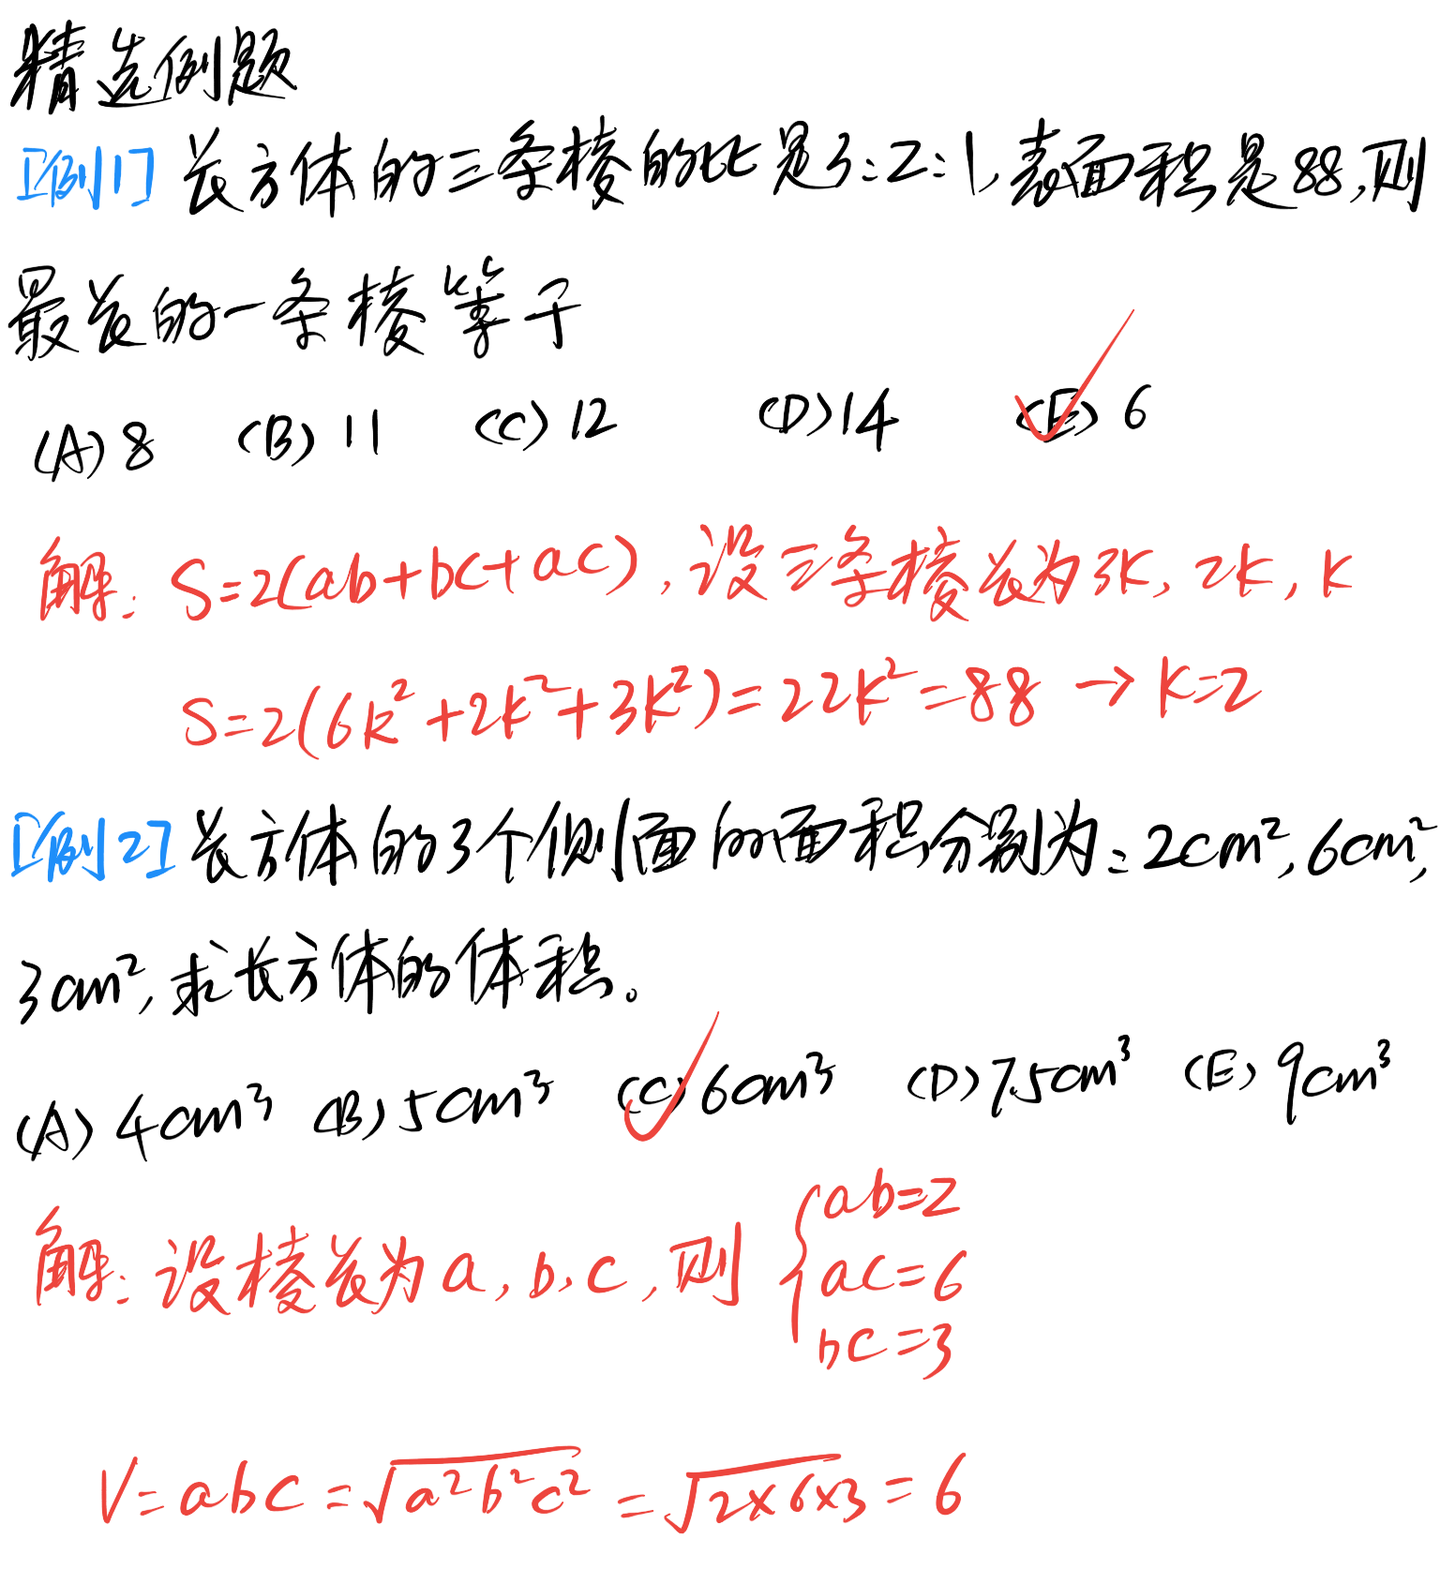 精选例题
[例1] 长方体的三条棱的比是3:2:1,表面积是88,则
最长的一条棱等于
(A) 8 (B) 11 (C) 12 (D) 14 (E) 6
解: S=2(ab+bc+ac), 设三条棱长为3k, 2k, k
S=2(6k²+2k²+3k²)=22k²=88 → k=2
[例2] 长方体的3个侧面的面积分别为: 2cm², 6cm²,
3cm², 求长方体的体积。
(A) 4cm³ (B) 5cm³ (C) 6cm³ (D) 7.5cm³ (E) 9cm³
解: 设棱长为a, b, c, 则 { ab=2
ac=6
bc=3
V=abc=√(a²b²c²)=√(2×6×3)=6